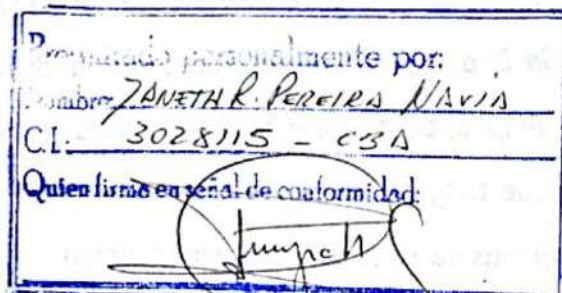 personalmente por:
Nombre: JANETH R. PEREIRA NAVIA
C.I.: 3028115 - CBA
Quien firma en señal de conformidad: